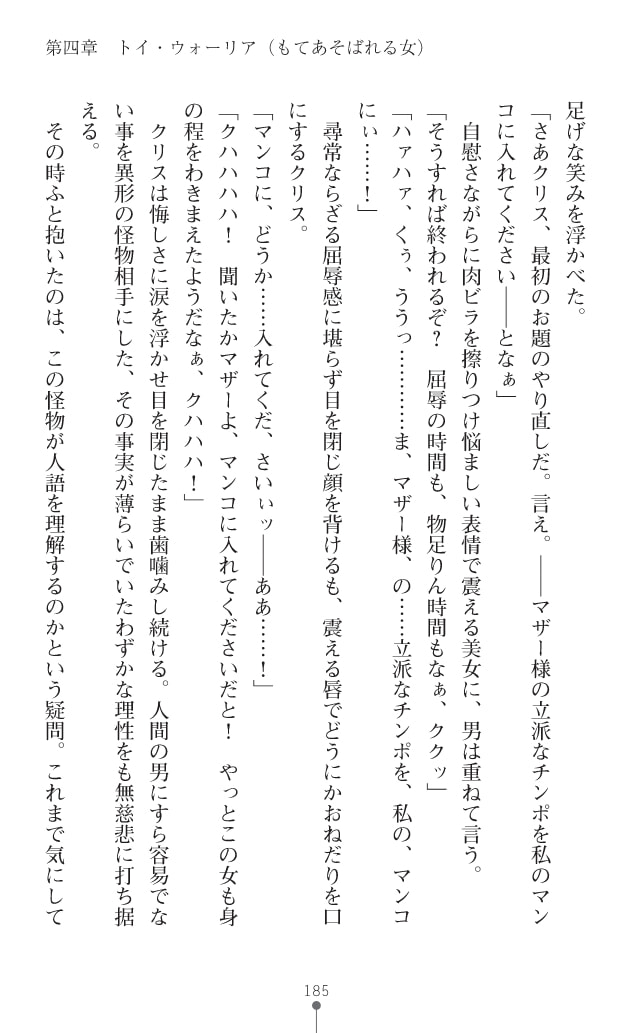 第四章　トイ・ウォーリア（もてあそばれる女）
足げな笑みを浮かべた。
「さあクリス、最初のお題のやり直しだ。言え。――マザー様の立派なチンポを私のマン
コに入れてください――となぁ」
　自慰さながらに肉ビラを擦りつけ悩ましい表情で震える美女に、男は重ねて言う。
「そうすれば終われるぞ？　屈辱の時間も、物足りん時間もなぁ、ククッ」
「ハァハァ、くぅ、ううっ…………ま、マザー様、の……立派なチンポを、私の、マンコ
にぃ……！」
　尋常ならざる屈辱感に堪らず目を閉じ顔を背けるも、震える唇でどうにかおねだりを口
にするクリス。
「マンコに、どうか……入れてくだ、さいぃッ――ああ……！」
「クハハハハ！　聞いたかマザーよ、マンコに入れてくださいだと！　やっとこの女も身
の程をわきまえたようだなぁ、クハハハ！」
　クリスは悔しさに涙を浮かせ目を閉じたまま歯噛みし続ける。人間の男にすら容易でな
い事を異形の怪物相手にした、その事実が薄らいでいたわずかな理性をも無慈悲に打ち据
える。
　その時ふと抱いたのは、この怪物が人語を理解するのかという疑問。これまで気にして
185